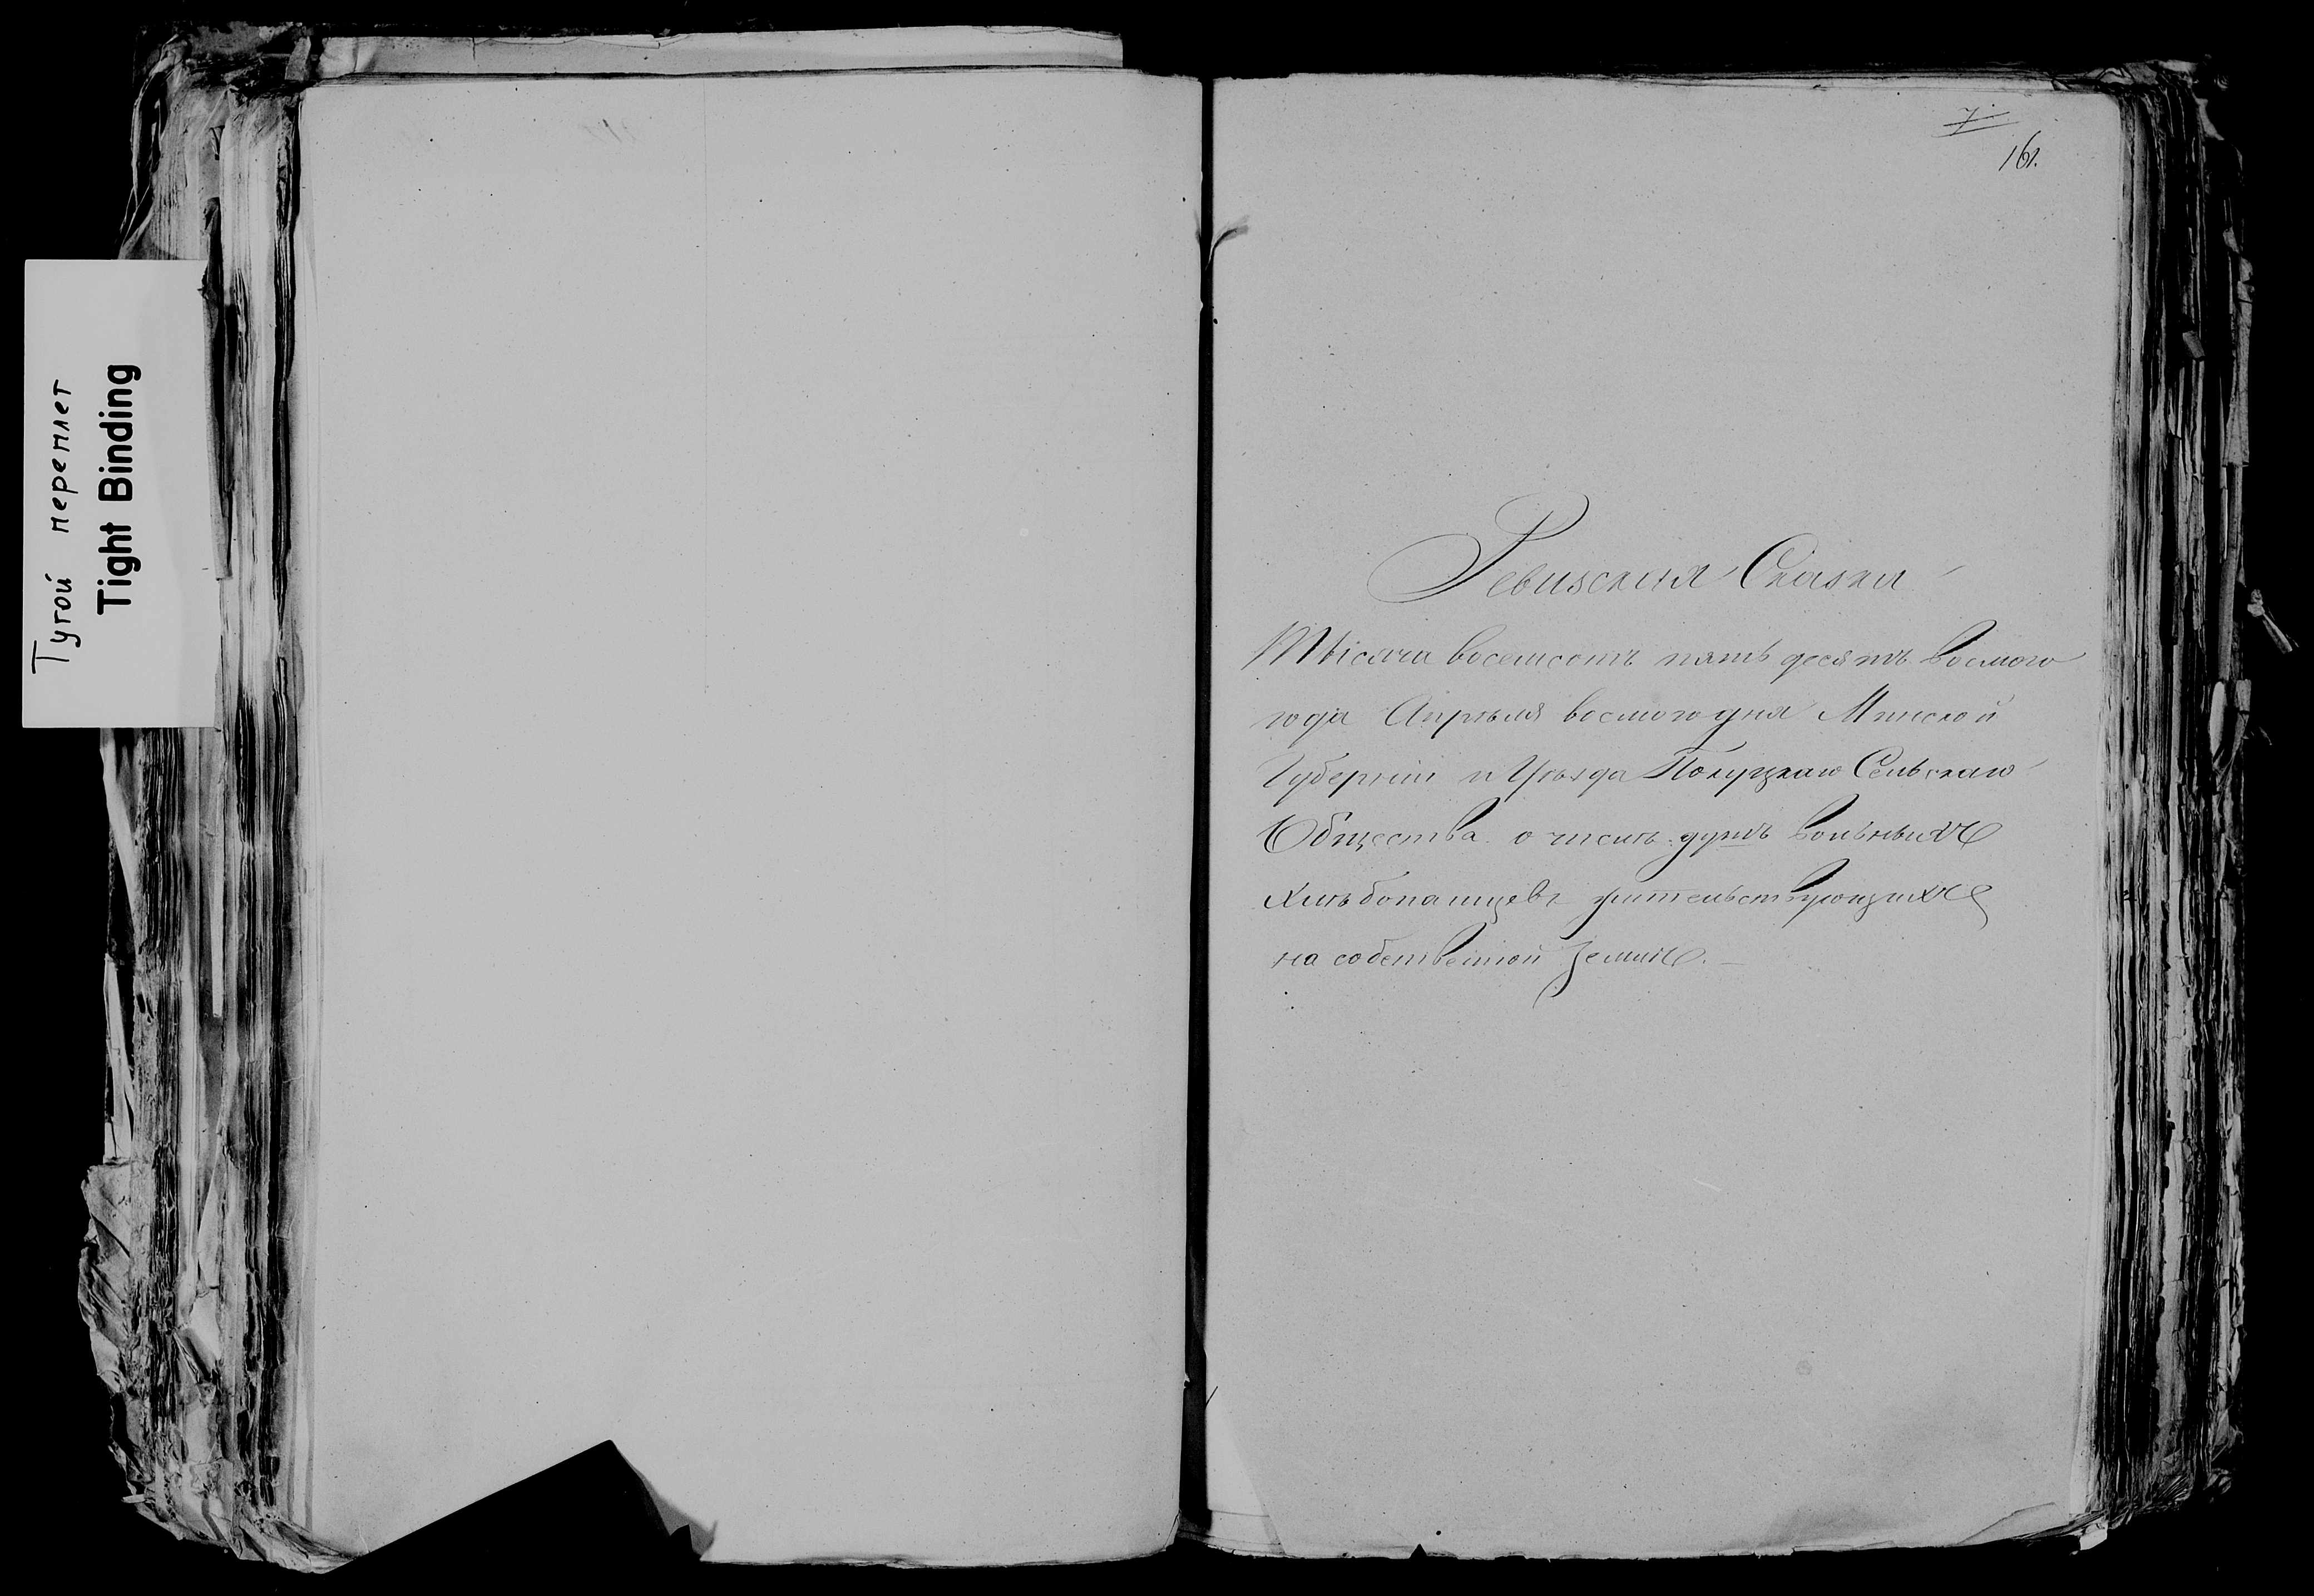 Тугой переплет
Tight Binding
7.
161.
Ревизская Сказка
Тысяча восемсотъ пятьдесятъ восмого
года Апрѣля восмого дня Минской
Губерніи и Уѣзда Полуцкаго Сельскаго
Общества о числѣ душъ вольныхъ
хлѣбопашцевъ жительствующихъ
на собственной землѣ. —